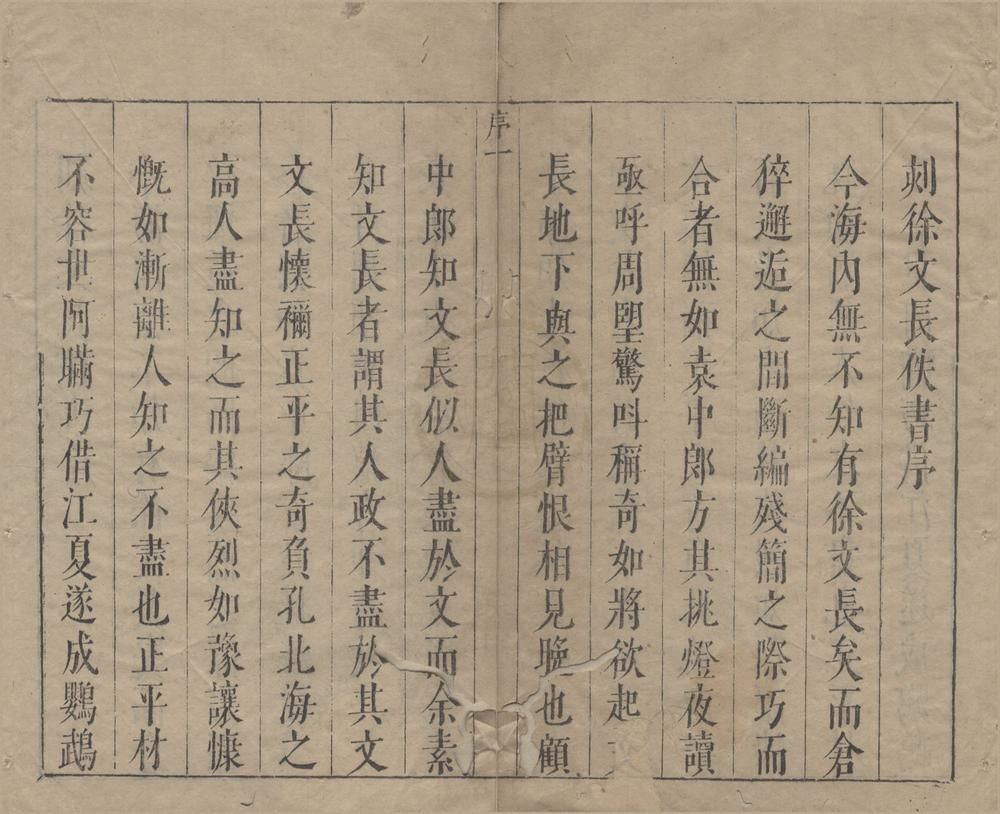 刻徐文長佚書序
今海內無不知有徐文長矣而倉
猝邂逅之間斷編殘簡之際巧而
合者無如袁中郎方其挑燈夜讀
亟呼周朢驚呌稱奇如將欲起
長地下與之把臂恨相見晚也顧
序一
中郎知文長似人盡於文而余素
知文長者謂其人政不盡於其文
文長懷禰正平之奇負孔北海之
高人盡知之而其俠烈如豫讓慷
慨如漸離人知之不盡也正平材
不容世阿瞞巧借江夏遂成鸚鵡